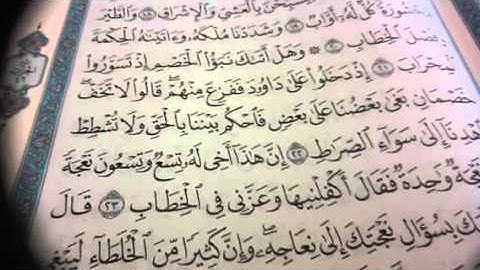 بِٱلْعَشِىِّ وَٱلْإِشْرَاقِ ١٨ وَٱلطَّيْرَ
مَحْشُورَةً كُلٌّ لَّهُۥٓ أَوَّابٌ ١٩ وَشَدَدْنَا مُلْكَهُۥ وَءَاتَيْنَـٰهُ ٱلْحِكْمَةَ
وَفَصْلَ ٱلْخِطَابِ ٢٠ ۞ وَهَلْ أَتَىٰكَ نَبَؤُا۟ ٱلْخَصْمِ إِذْ تَسَوَّرُوا۟
ٱلْمِحْرَابَ ٢١ إِذْ دَخَلُوا۟ عَلَىٰ دَاوُۥدَ فَفَزِعَ مِنْهُمْ ۖ قَالُوا۟ لَا تَخَفْ ۖ
خَصْمَانِ بَغَىٰ بَعْضُنَا عَلَىٰ بَعْضٍ فَٱحْكُم بَيْنَنَا بِٱلْحَقِّ وَلَا تُشْطِطْ
هْدِنَآ إِلَىٰ سَوَآءِ ٱلصِّرَٰطِ ٢٢ إِنَّ هَـٰذَآ أَخِى لَهُۥ تِسْعٌ وَتِسْعُونَ نَعْجَةً
عْجَةٌ وَٰحِدَةٌ فَقَالَ أَكْفِلْنِيهَا وَعَزَّنِى فِى ٱلْخِطَابِ ٢٣ قَالَ
كَ بِسُؤَالِ نَعْجَتِكَ إِلَىٰ نِعَاجِهِۦ ۖ وَإِنَّ كَثِيرًا مِّنَ ٱلْخُلَطَآءِ لَيَبْغِى